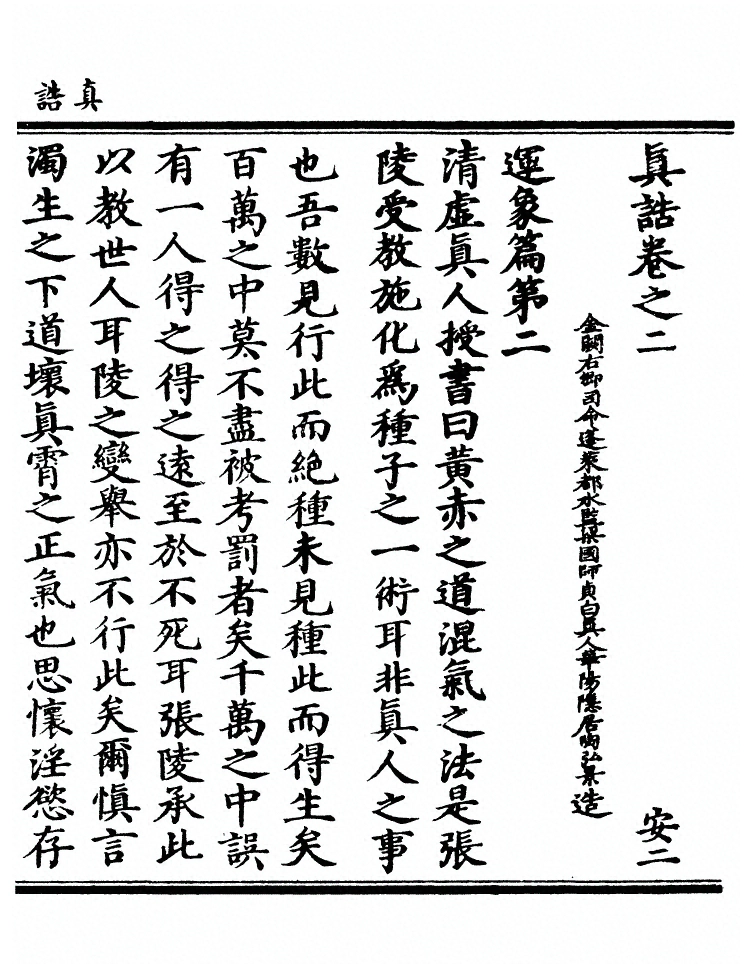 真誥
眞誥卷之二
安二
金闕右卿司命蓬萊都水監梁國師貞白眞人華陽隱居陶弘景造
運象篇第二
清虛眞人授書曰黃赤之道混氣之法是張
陵受教施化爲種子之一術耳非眞人之事
也吾數見行此而絶種未見種此而得生矣
百萬之中莫不盡被考罰者矣千萬之中誤
有一人得之得之遠至於不死耳張陵承此
以教世人耳陵之變舉亦不行此矣爾慎言
濁生之下道壞眞霄之正氣也思懷淫慾存